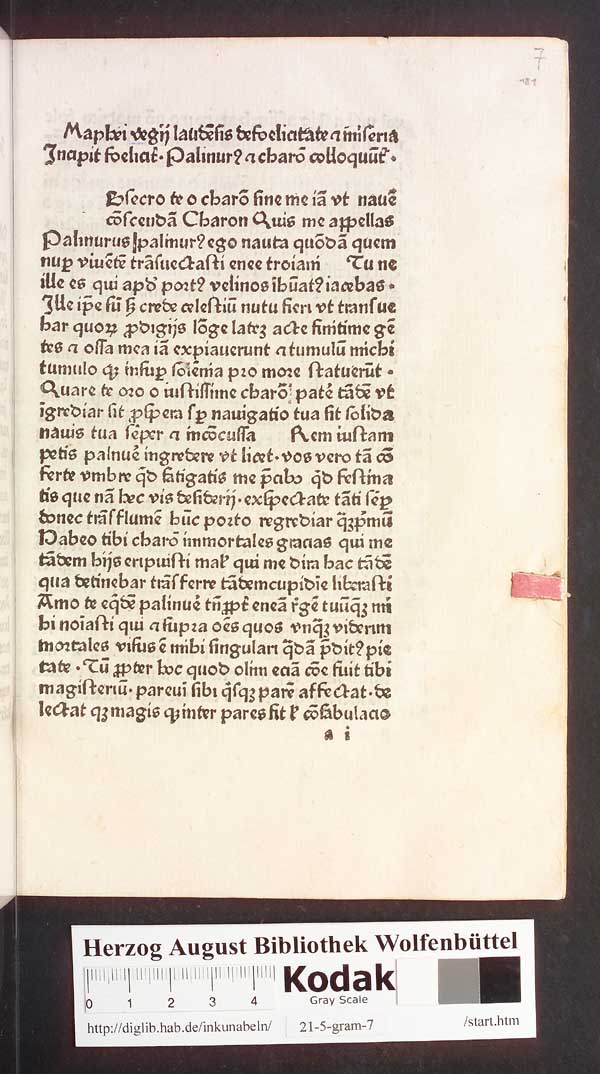 7
181
Maphei vegij laudēsis defoelicitate ⁊ miseria
Incipit foeliciť· Palinurꝰ ⁊ charō colloquūť·
Bsecro te o charō sine me iā vt nauē
cōscendā Charon Quis me appellas
Palinurus palinurꝰ ego nauta quōdā quem
nuꝑ viuētē trāsuectasti enee troiani Tu ne
ille es qui apđ portꝰ velinos ihūatꝰ iacebas·
Ille ip̄e sū sꝫ crede celestiū nutu fieri vt transue
har quoꝝ ꝓdigijs lōge lateꝫ acte finitime gē
tes ⁊ ossa mea iā expiauerunt ⁊ tumulū michi
tumulo qꝫ insuꝑ solēmia pro more statuerūt·
Quare te oro o iustissime charō patē tādē vt
īgrediar sit ꝓspera sꝑ nauigatio tua sit solida
nauis tua sēper ⁊ incōcussa Rem iustam
petis palinuē ingredere vt licet· vos vero tā cō
ferte vmbre qđ fatigatis me p̄cabo qđ festina
tis que nā hec vis desiderij· exspectate tāti sēꝑ
donec trās flumē hūc porto regrediar qꝫp̄mū
Habeo tibi charō immortales gracias qui me
tādem hijs eripuisti mať qui me dira hac tādē
qua detinebar trāsferre tādemcupidīe liberasti
Amo te eq̄de palinuē tñꝓpť eneā ŕgē tuūqꝫ mi
hi noīasti qui ⁊ supra oēs quos vnqꝫ viderim
mortales visus ē mihi singulari q̄dā p̄ditꝰ pie
tate· Tū ꝓpter hoc quod olim eciā cōe fuit tibi
magisteriū· pareui sibi q̄sqꝫ parē affectat· de
lectat qꝫ magis qꝫ inter pares sit ť cōfabulacio
a i
Herzog August Bibliothek Wolfenbüttel
0 1 2 3 4 Kodak
Gray Scale
http://diglib.hab.de/inkunabeln/ 21-5-gram-7 /start.htm